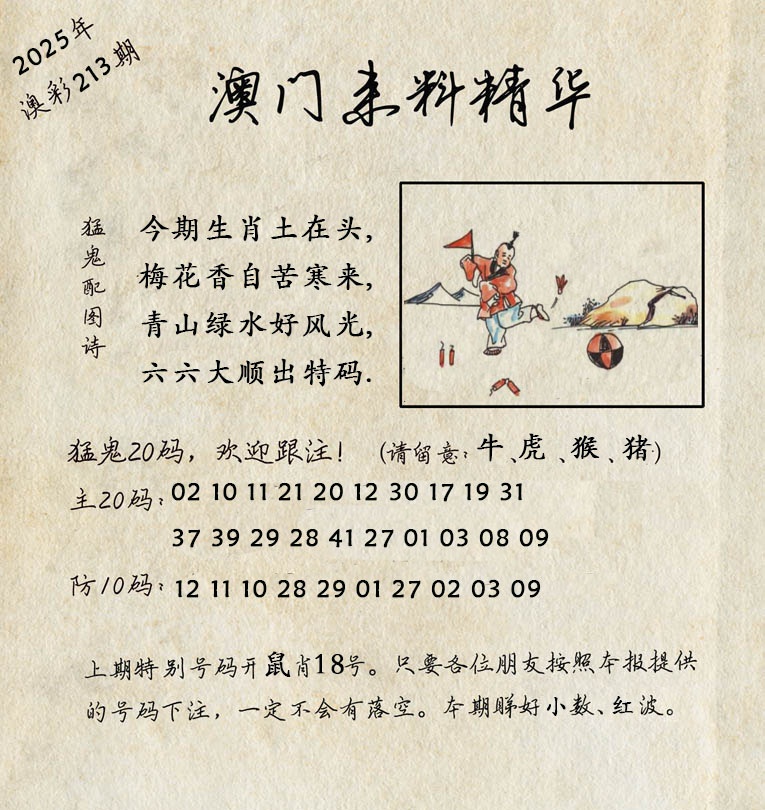 2025年
澳彩213期
澳门来料精华
猛鬼配图诗
今期生肖土在头,
梅花香自苦寒来,
青山绿水好风光,
六六大顺出特码.
猛鬼20码，欢迎跟注！（请留意：牛、虎、猴、猪）
主20码：02 10 11 21 20 12 30 17 19 31
37 39 29 28 41 27 01 03 08 09
防10码：12 11 10 28 29 01 27 02 03 09
上期特别号码开鼠肖18号。只要各位朋友按照本报提供
的号码下注，一定不会有落空。本期睇好小数、红波。